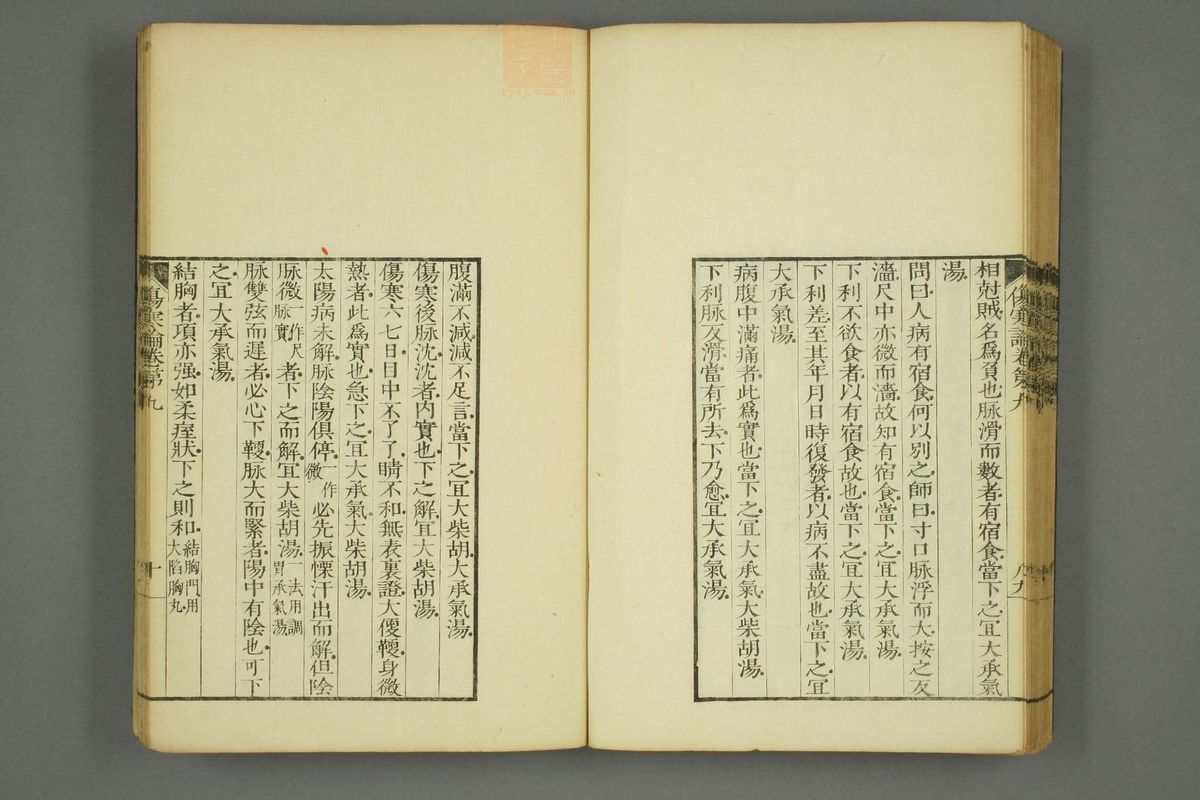 相尅賊名爲負也脉滑而數者有宿食當下之宜大承氣
湯
問曰人病有宿食何以别之師曰寸口脉浮而大按之反
濇尺中亦微而濇故知有宿食當下之宜大承氣湯
下利不欲食者以有宿食故也當下之宜大承氣湯
下利差至其年月日時復發者以病不盡故也當下之宜
大承氣湯
病腹中滿痛者此爲實也當下之宜大承氣大柴胡湯
下利脉反滑當有所去下乃愈宜大承氣湯
腹滿不減減不足言當下之宜大柴胡大承氣湯
傷寒後脉沈沈者内實也下之解宜大柴胡湯
傷寒六七日目中不了了睛不和無表裏證大便鞕身微
熱者此爲實也急下之宜大承氣大柴胡湯
太陽病未解脉陰陽俱停一作微必先振慄汗出而解但陰
脉微一作尺脉實者下之而解宜大柴胡湯一法用調胃承氣湯
脉雙弦而遲者必心下鞕脉大而緊者陽中有陰也可下
之宜大承氣湯
結胸者項亦强如柔痓狀下之則和結胸門用大陷胸丸
傷寒論卷第九
十
zysj.com.cn